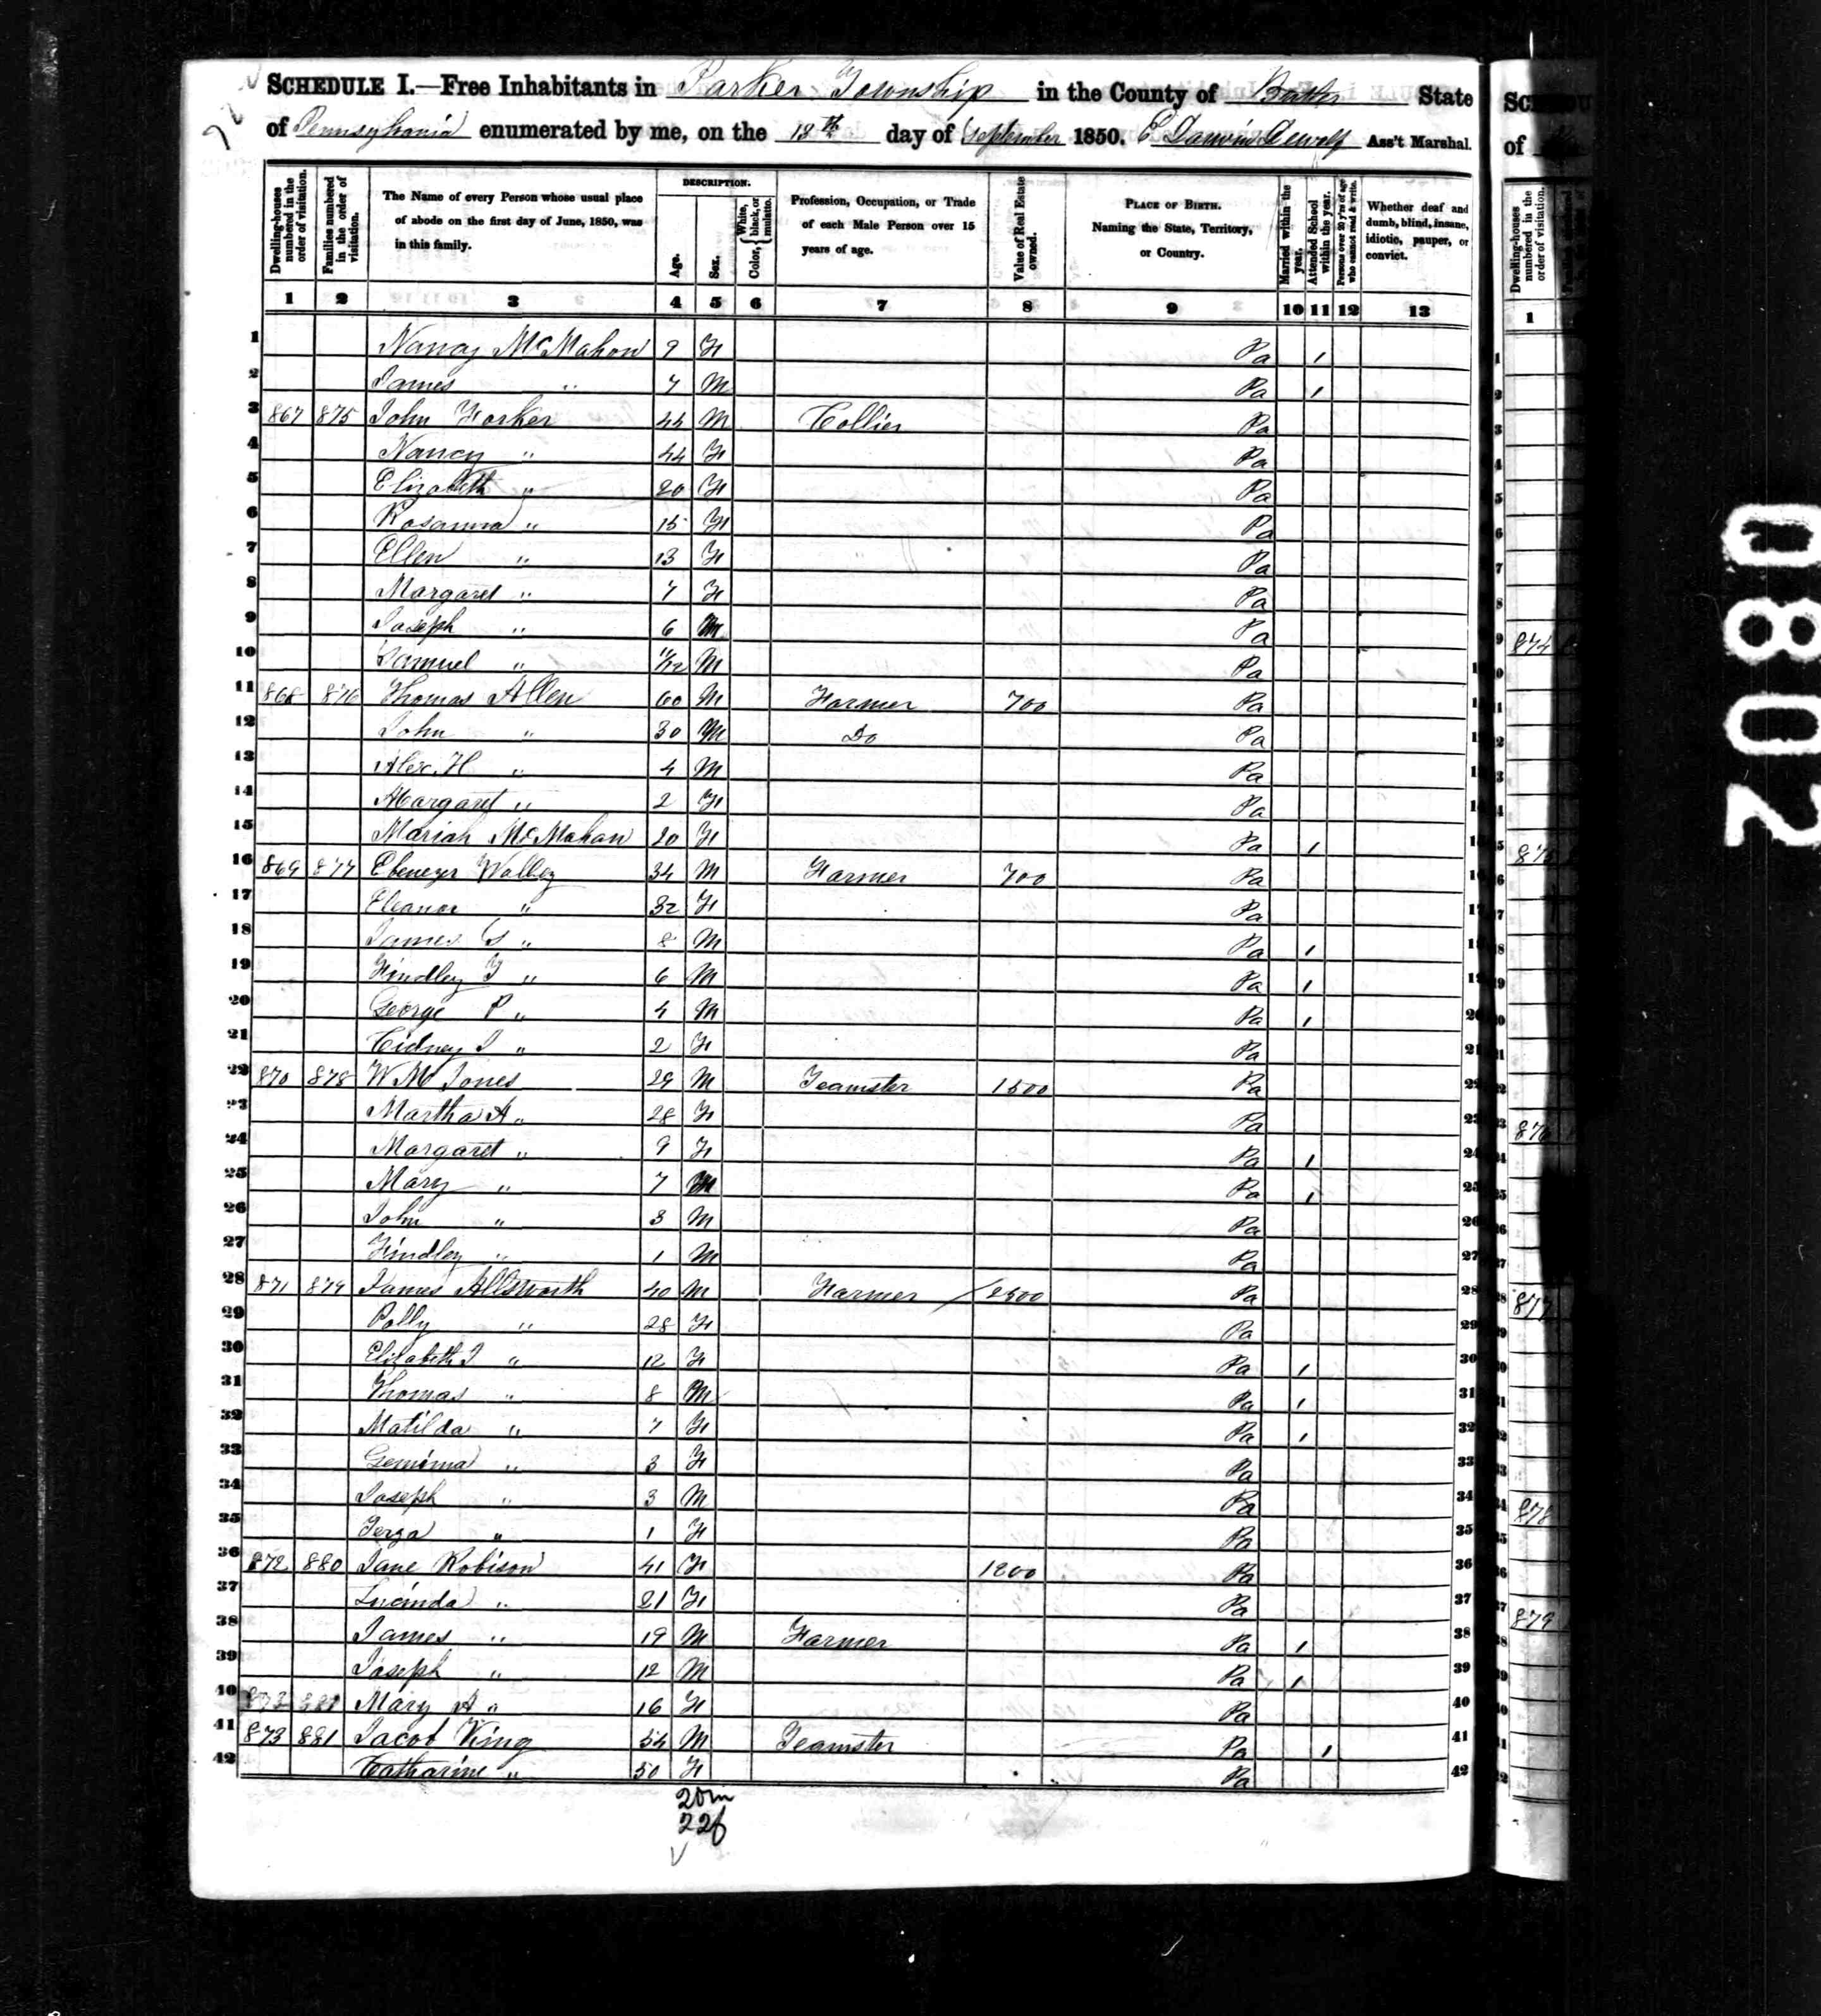 SCHEDULE I.—Free Inhabitants in Parker Township in the County of Butler State
of Pennsylvania enumerated by me, on the 18th day of September 1850. E Darwin Dewolf Ass't Marshal.
Dwelling-houses numbered in the order of visitation.
Families numbered in the order of visitation.
The Name of every Person whose usual place of abode on the first day of June, 1850, was in this family.
DESCRIPTION.
Age.
Sex.
Color, { White, black, or mulatto.
Profession, Occupation, or Trade of each Male Person over 15 years of age.
Value of Real Estate owned.
PLACE OF BIRTH. Naming the State, Territory, or Country.
Married within the year.
Attended School within the year.
Persons over 20 y'rs of age who cannot read & write.
Whether deaf and dumb, blind, insane, idiotic, pauper, or convict.
1 2 3 4 5 6 7 8 9 10 11 12 13
1 Nancy McMahon 9 F Pa / 1
2 James " 7 M Pa / 2
3 867 875 John Forker 44 M Collier Pa 3
4 Nancy " 44 F Pa 4
5 Elizabeth " 20 F Pa 5
6 Rosanna " 15 F Pa 6
7 Ellen " 13 F Pa 7
8 Margaret " 7 F Pa 8
9 Joseph " 6 M Pa 9
10 Samuel " 11/12 M Pa 10
11 868 876 Thomas Allen 60 M Farmer 700 Pa 11
12 John " 30 M Do Pa 12
13 Alex. H " 4 M Pa 13
14 Margaret " 2 F Pa 14
15 Mariah McMahan 20 F Pa / 15
16 869 877 Ebenezer Walley 34 M Farmer 700 Pa 16
17 Eleanor " 32 F Pa 17
18 James S " 8 M Pa / 18
19 Findley Y " 6 M Pa / 19
20 George P " 4 M Pa / 20
21 Cidney J " 2 F Pa 21
22 870 878 W M Jones 29 M Teamster 1500 Pa 22
23 Martha A " 28 F Pa 23
24 Margaret " 9 F Pa / 24
25 Mary " 7 Pa / 25
26 John " 3 M Pa 26
27 Findley " 1 M Pa 27
28 871 879 James Allsworth 40 M Farmer 2500 Pa 28
29 Polly " 28 F Pa 29
30 Elizabeth J " 12 F Pa / 30
31 Thomas " 8 M Pa / 31
32 Matilda " 7 F Pa / 32
33 Gemima " 3 F Pa 33
34 Joseph " 3 M Pa 34
35 Terza " 1 F Pa 35
36 872 880 Jane Robison 41 F 1200 Pa 36
37 Lucinda " 21 F Pa 37
38 James " 19 M Farmer Pa / 38
39 Joseph " 12 M Pa / 39
40 873 881 Mary A " 16 F Pa 40
41 873 881 Jacob King 54 M Teamster Pa / 41
42 Catharine " 50 F Pa 42
20m
22f
SCHEDU
of
Dwelling-houses numbered in the order of visitation.
1
874
875
876
877
878
879
0802